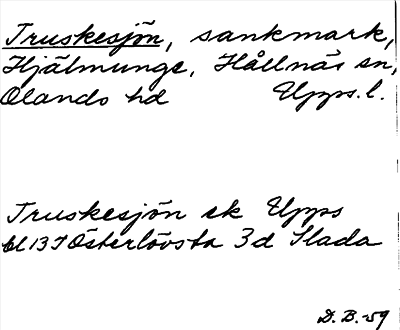 Truskesjön, sankmark,
Hjälmunge, Hållnäs sn,
Olands hd Upps. l.
Truskesjön ek Upps
bl 13 I Österlövsta 3d Slada
D. B. -59